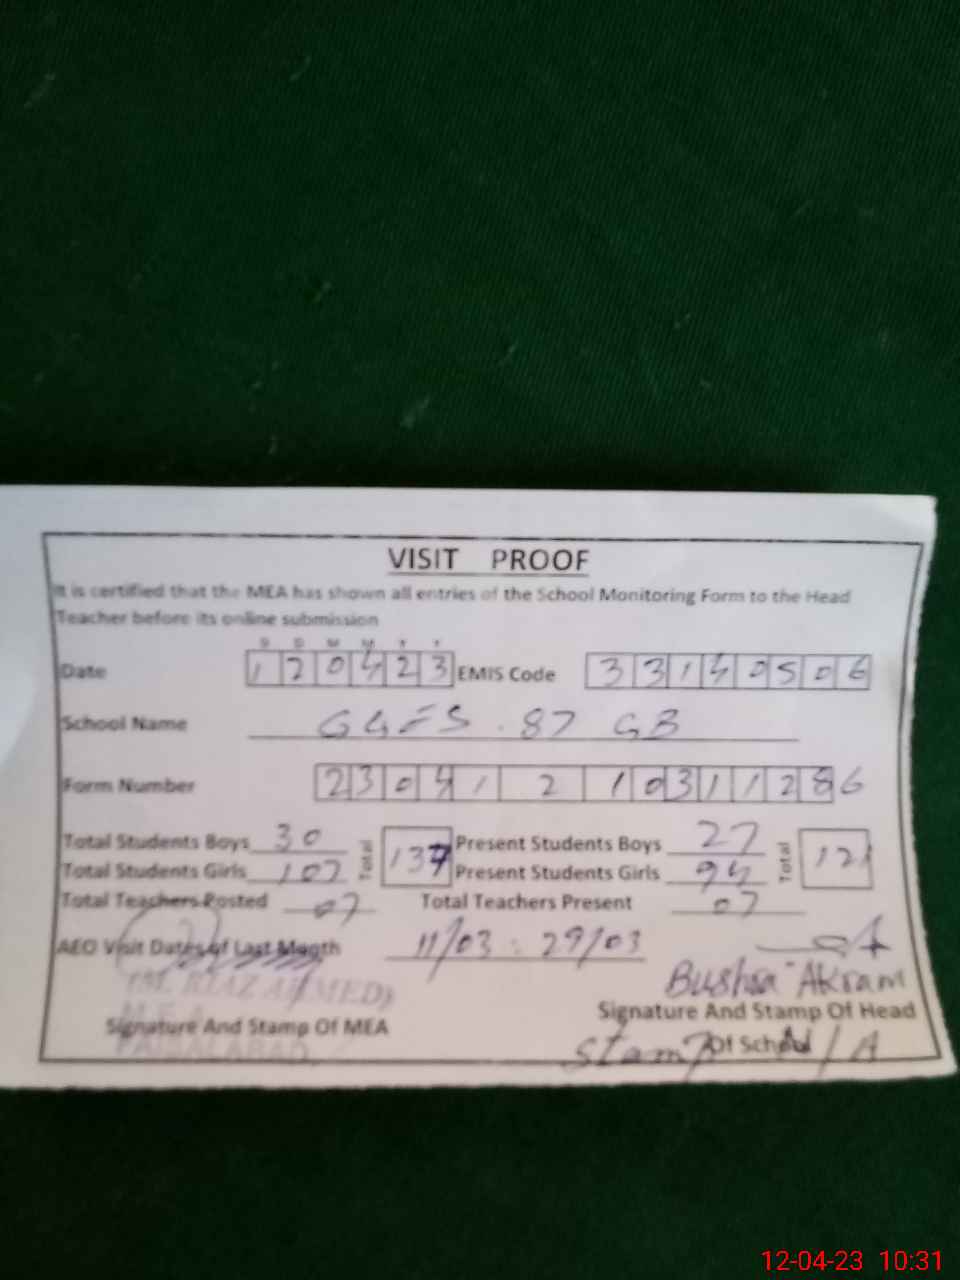 VISIT PROOF
It is certified that the MEA has shown all entries of the School Monitoring Form to the Head
Teacher before its online submission
D D M M Y Y
Date 120423 EMIS Code 33140506
School Name GGES . 87 GB
Form Number 23041210311286
Total Students Boys 30 Total 137 Present Students Boys 27 Total 121
Total Students Girls 107 Present Students Girls 94
Total Teachers Posted 07 Total Teachers Present 07
AEO Visit Dates of Last Month 11/03 : 29/03
(M. RIAZ AHMED) Bushra Akram
M.E.A Signature And Stamp Of Head
Signature And Stamp Of MEA Of School
FAISALABAD Stamp N/A
12-04-23 10:31